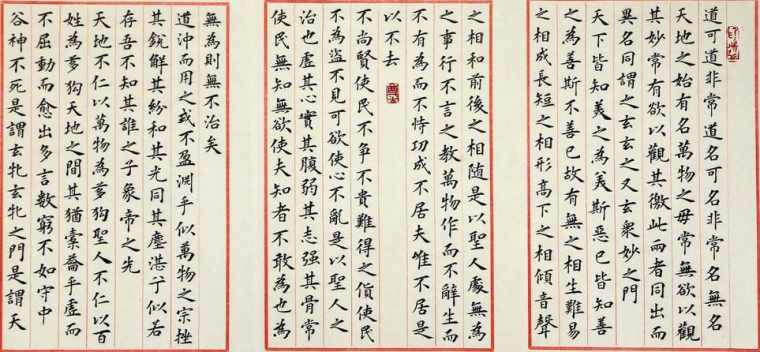 道可道非常道名可名非常名無名
天地之始有名萬物之母常無欲以觀
其妙常有欲以觀其徼此兩者同出而
異名同謂之玄玄之又玄衆妙之門
天下皆知美之為美斯惡已皆知善
之為善斯不善已故有無之相生難易
之相成長短之相形高下之相傾音聲
之相和前後之相隨是以聖人處無為
之事行不言之教萬物作而不辭生而
不有為而不恃功成不居夫惟不居是
以不去
不尚賢使民不爭不貴難得之貨使民
不為盜不見可欲使心不亂是以聖人之
治也虛其心實其腹弱其志强其骨常
使民無知無欲使夫知者不敢為也為
無為則無不治矣
道沖而用之或不盈淵乎似萬物之宗挫
其銳解其紛和其光同其塵湛兮似若
存吾不知其誰之子象帝之先
天地不仁以萬物為芻狗聖人不仁以百
姓為芻狗天地之間其猶橐籥乎虛而
不屈動而愈出多言數窮不如守中
谷神不死是謂玄牝玄牝之門是謂天